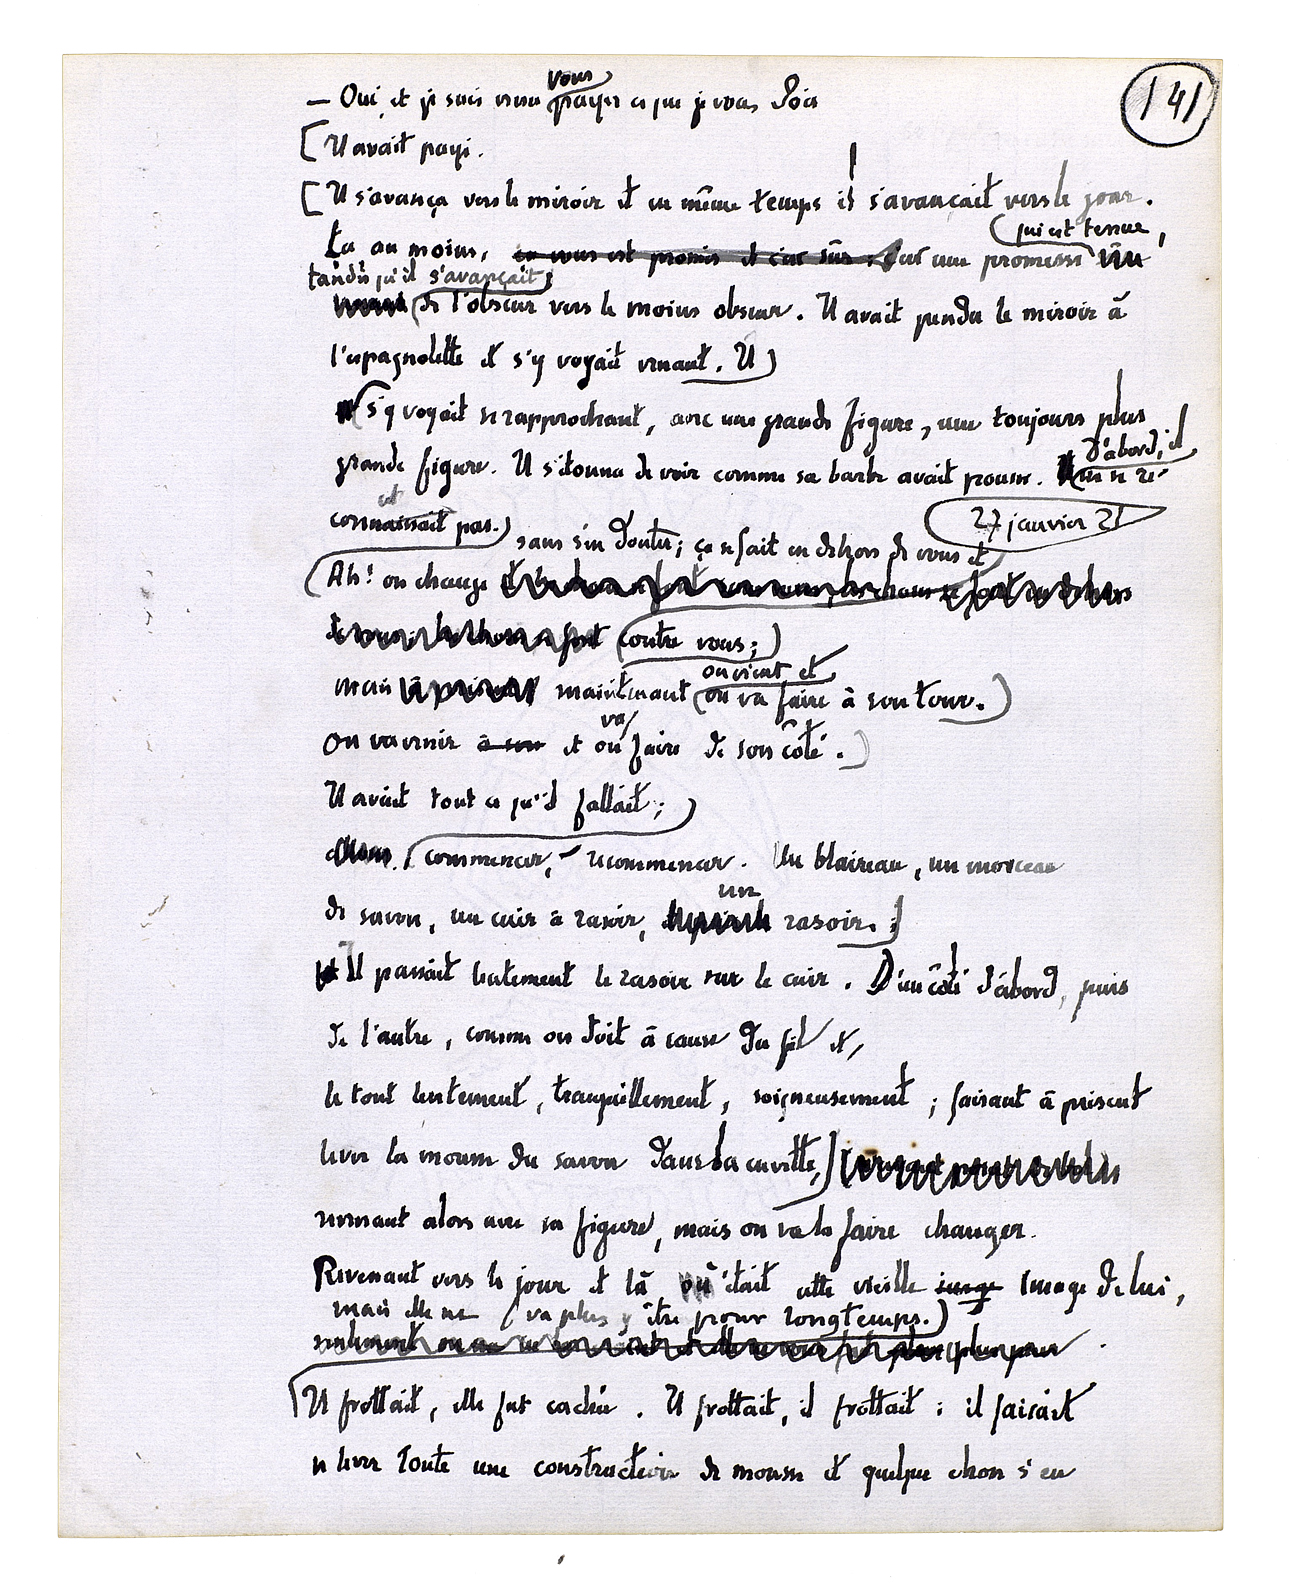 141
vous
— Oui, et je suis venu payer ce que je vous dois
[Il avait payé.
[Il s'avança vers le miroir et en même temps il s'avançait vers le jour.
qui est tenue,
Là au moins, ce vous est promis et c'est sûr : c'est une promesse
tandis qu'il s'avançait
de l'obscur vers le moins obscur. Il avait pendu le miroir à
l'espagnolette et s'y voyait venant. Il
s'y voyait se rapprochant, avec une grande figure, une toujours plus
D'abord, il
grande figure. Il s'étonna de voir comme sa barbe avait poussé. ne se re-
connaissait pas.
27 janvier 21
sans s'en douter; ça se fait en dehors de vous et
Ah! on change
contre vous;
on vient et
mais maintenant on va faire à son tour.
va
On va venir à son et on faire de son côté.
Il avait tout ce qu'il fallait;
commencer, – recommencer. Un blaireau, un morceau
un
de savon, un cuir à rasoir, rasoir.
Il passait lentement le rasoir sur le cuir. D'un côté d'abord, puis
de l'autre, comme on doit à cause du fil et,
le tout lentement, tranquillement, soigneusement; faisant à présent
lever la mousse du savon dans la cuvette,
revenant alors avec sa figure, mais on va la faire changer.
Revenant vers le jour et là où était cette vieille image Image de lui,
mais elle ne va plus y être pour longtemps.
Il frottait, elle fut cachée. Il frottait, il frottait : il faisait
se lever toute une construction de mousse et quelque chose s'en